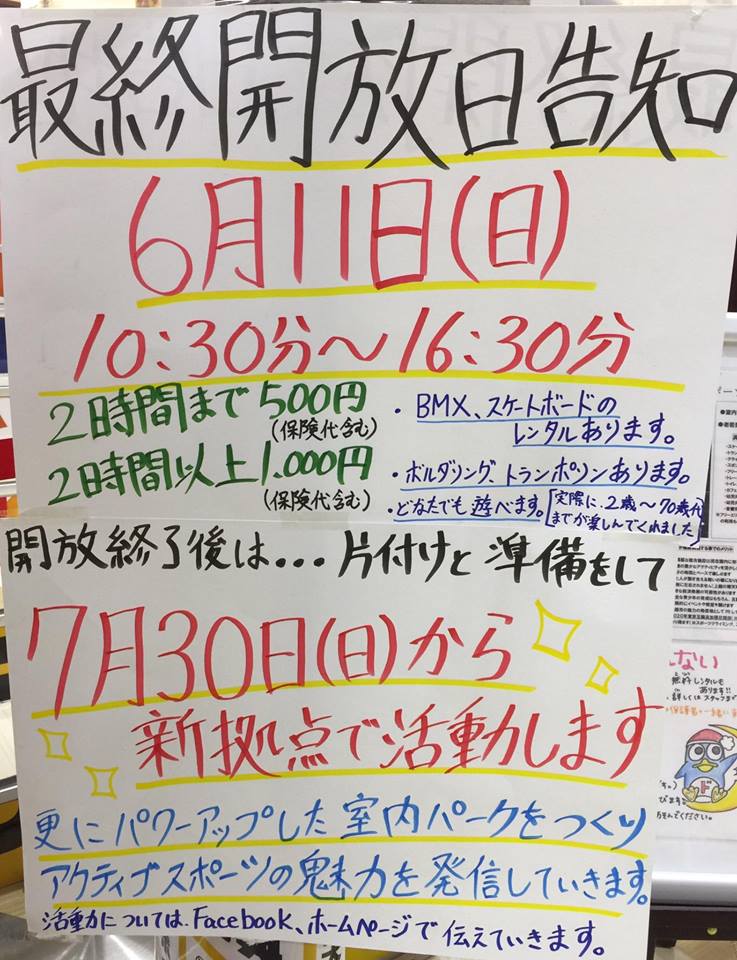 最終開放日告知
6月11日(日)
10:30分〜16:30分
2時間まで500円
(保険代含む)
2時間以上1.000円
(保険代含む)
・BMX、スケートボードの
レンタルあります。
・ボルダリング、トランポリンあります。
・どなたでも遊べます。
実際に、2歳〜70歳代
までが楽しんでくれました
開放終了後は...片付けと準備をして
7月30日(日)から
新拠点で活動します
更にパワーアップした室内パークをつくり
アクティブスポーツの魅力を発信していきます。
活動力については、Facebook、ホームページで伝えていきます。
レンタルも
あります!!
詳しくはスタッフまで
ド